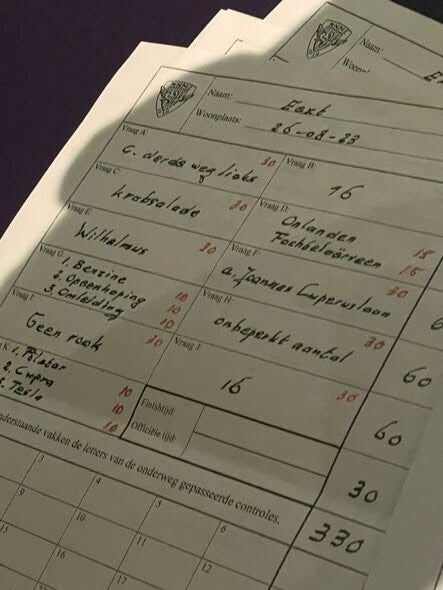 Naam:
Naam: Eext
Woonplaats: 26-08-23
Vraag A: C. derde weg links 30
Vraag B: 16
Vraag C: krabsalade 30
Vraag D: Onlanden 15
Fochteloërveen 15
Vraag E: Wilhelmus 30
Vraag F: a. Joannes Cuperuslaan 30
Vraag G: 1, Benzine 10
2. Opeenhoping 10
3. Omleiding 10
Vraag H: onbeperkt aantal 30
60
Vraag I: Geen rook 30
Vraag J: 16 30
60
K: 1. Polestar 10
2. Cupra 10
3. Tesla 10
Finishtijd:
Officiële tijd:
30
330
onderstaande vakken de letters van de onderweg gepasseerde controles.
3 4 5 6
9 10 11 12
15 16 17